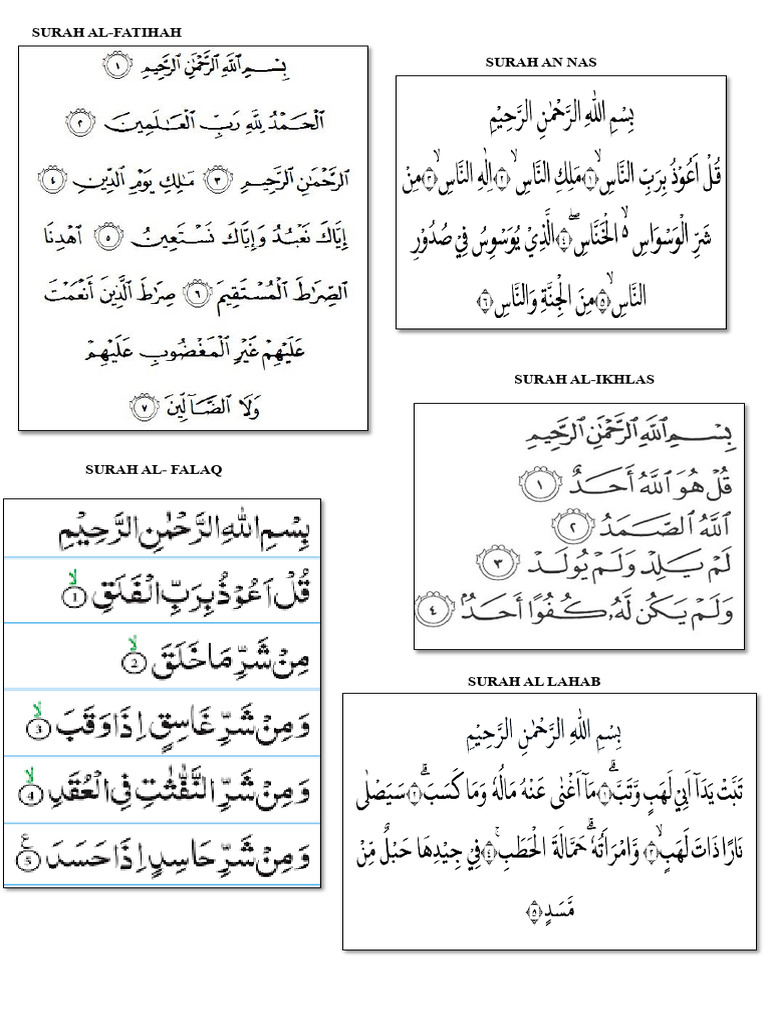 SURAH AL-FATIHAH
بِسْمِ ٱللَّهِ ٱلرَّحْمَٰنِ ٱلرَّحِيمِ ١
ٱلْحَمْدُ لِلَّهِ رَبِّ ٱلْعَٰلَمِينَ ٢
ٱلرَّحْمَٰنِ ٱلرَّحِيمِ ٣ مَٰلِكِ يَوْمِ ٱلدِّينِ ٤
إِيَّاكَ نَعْبُدُ وَإِيَّاكَ نَسْتَعِينُ ٥ ٱهْدِنَا
ٱلصِّرَٰطَ ٱلْمُسْتَقِيمَ ٦ صِرَٰطَ ٱلَّذِينَ أَنْعَمْتَ
عَلَيْهِمْ غَيْرِ ٱلْمَغْضُوبِ عَلَيْهِمْ
وَلَا ٱلضَّآلِّينَ ٧
SURAH AN NAS
بِسْمِ اللهِ الرَّحْمٰنِ الرَّحِيْمِ
قُلْ اَعُوْذُ بِرَبِّ النَّاسِۙ ١ مَلِكِ النَّاسِۙ ٢ اِلٰهِ النَّاسِۙ ٣ مِنْ
شَرِّ الْوَسْوَاسِ ەۙ الْخَنَّاسِۖ ٤ الَّذِيْ يُوَسْوِسُ فِيْ صُدُوْرِ
النَّاسِۙ ٥ مِنَ الْجِنَّةِ وَالنَّاسِ ٦
SURAH AL-IKHLAS
بِسْمِ ٱللَّهِ ٱلرَّحْمَٰنِ ٱلرَّحِيمِ
قُلْ هُوَ ٱللَّهُ أَحَدٌ ١
ٱللَّهُ ٱلصَّمَدُ ٢
لَمْ يَلِدْ وَلَمْ يُولَدْ ٣
وَلَمْ يَكُن لَّهُۥ كُفُوًا أَحَدٌۢ ٤
SURAH AL- FALAQ
بِسْمِ اللهِ الرَّحْمٰنِ الرَّحِيْمِ
قُلْ اَعُوْذُ بِرَبِّ الْفَلَقِۙ 1
مِنْ شَرِّ مَا خَلَقَۙ 2
وَمِنْ شَرِّ غَاسِقٍ اِذَا وَقَبَۙ 3
وَمِنْ شَرِّ النَّفّٰثٰتِ فِى الْعُقَدِۙ 4
وَمِنْ شَرِّ حَاسِدٍ اِذَا حَسَدَ ع 5
SURAH AL LAHAB
بِسْمِ اللهِ الرَّحْمٰنِ الرَّحِيْمِ
تَبَّتْ يَدَآ اَبِيْ لَهَبٍ وَّتَبَّۗ ١ مَآ اَغْنٰى عَنْهُ مَالُهٗ وَمَا كَسَبَۗ ٢ سَيَصْلٰى
نَارًا ذَاتَ لَهَبٍۙ ٣ وَّامْرَاَتُهٗۗ حَمَّالَةَ الْحَطَبِۚ ٤ فِيْ جِيْدِهَا حَبْلٌ مِّنْ
مَّسَدٍ ٥